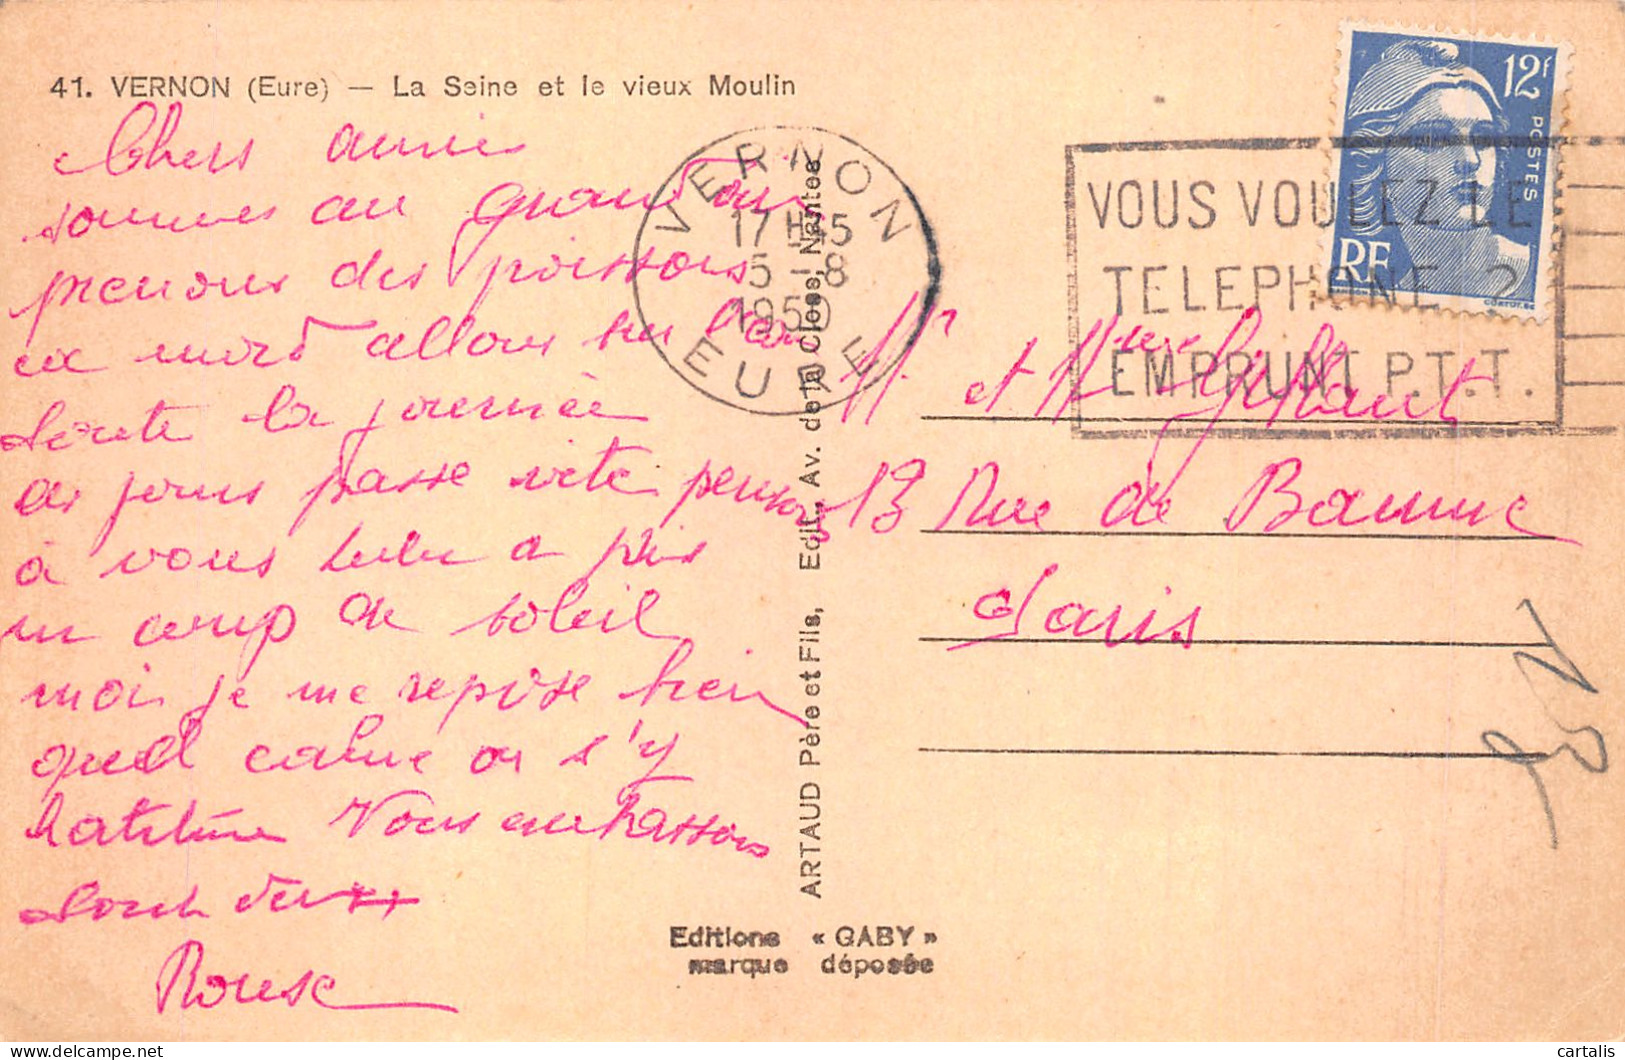 41. VERNON (Eure) — La Seine et le vieux Moulin
Chers amis
sommes au grand air
prenons des poissons
en nord allons sur l'eau
toute la journée
les jours passe vite pensons
à vous bebe a pris
un coup de soleil
moi je me repose bien
quel calme on s'y
Nous embrassons
tous deux
VERNON
17H45
5-8
1950
EURE
VOUS VOULEZ LE
TELEPHONE ?
EMPRUNT P.T.T.
12F
POSTES
RF
Mr et Mme
13 Rue de
Paris
ARTAUD Père et Fils, Edit., Av. de la Close, Nantes
Editions « GABY »
marque déposée
cartalis